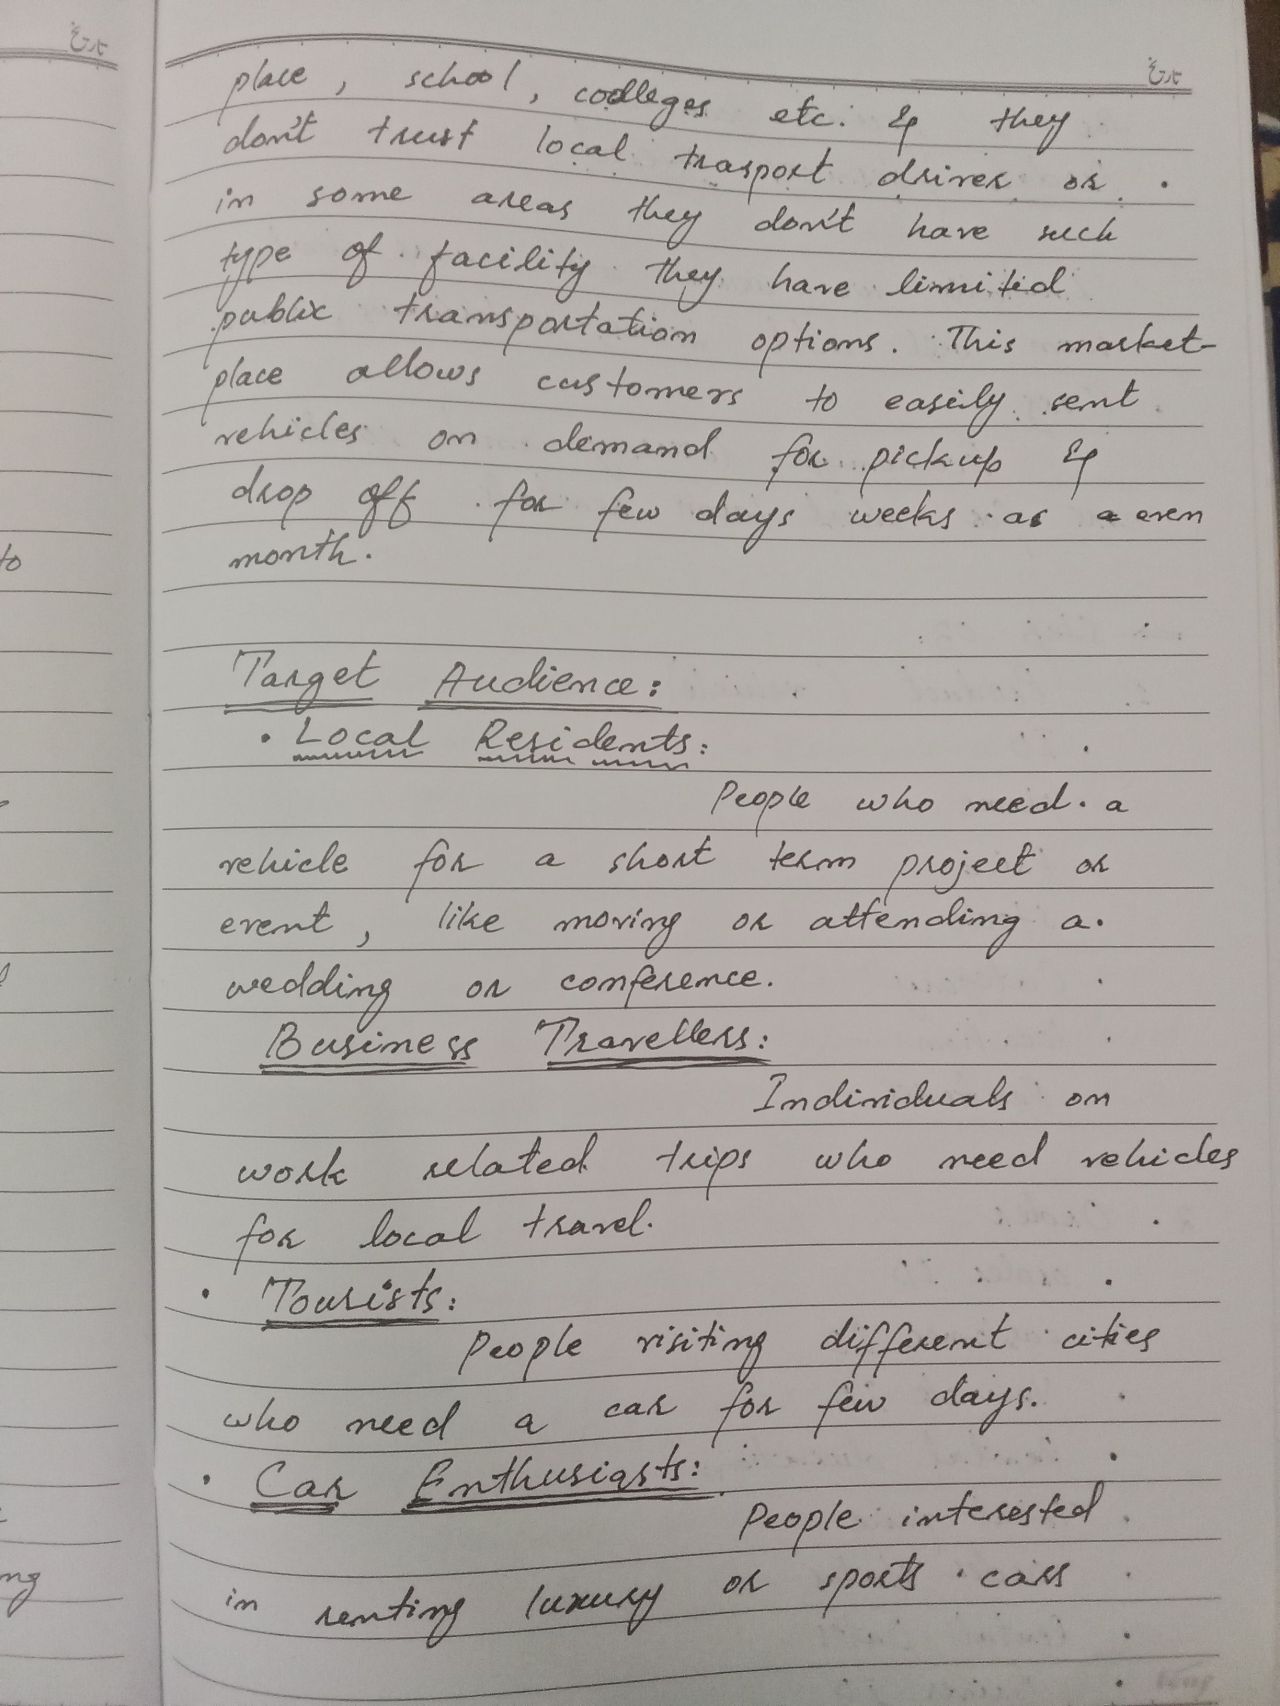 تاریخ
تاریخ
place, school, coolleges etc. & they
don't trust local trasport driver or
in some areas they don't have such
type of facility they have limited
public transportation options. This market-
place allows customers to easily rent
vehicles on demand for pickup &
drop off for few days weeks or a even
month.
Target Audience:
• Local Residents:
People who need a
vehicle for a short term project or
event, like moving or attending a
wedding or conference.
Business Travellers:
Individuals on
work related trips who need vehicles
for local travel.
• Tourists:
People visiting different cities
who need a car for few days.
• Car Enthusiasts:
People interested
in renting luxury or sports cars
to
ng